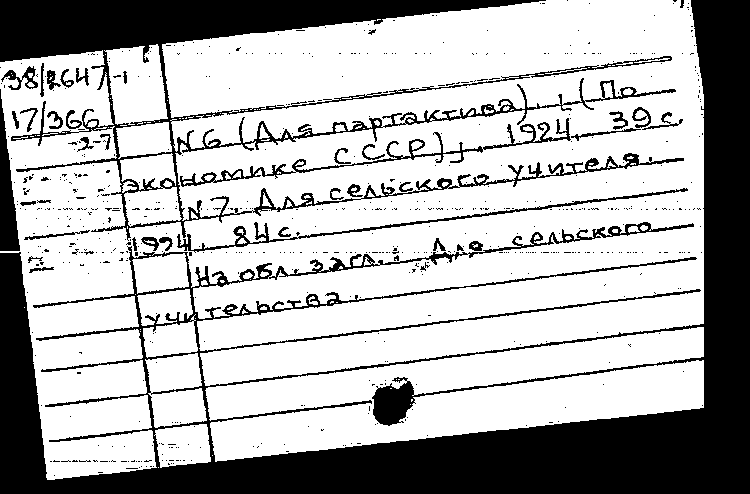 38/2647-1
17/366
-2-7
N6 (Для партактива). [(По
экономике СССР)]. 1924. 39 с.
N7. Для сельского учителя.
1924. 84 с.
На обл. загл.: Для сельского
учительства.